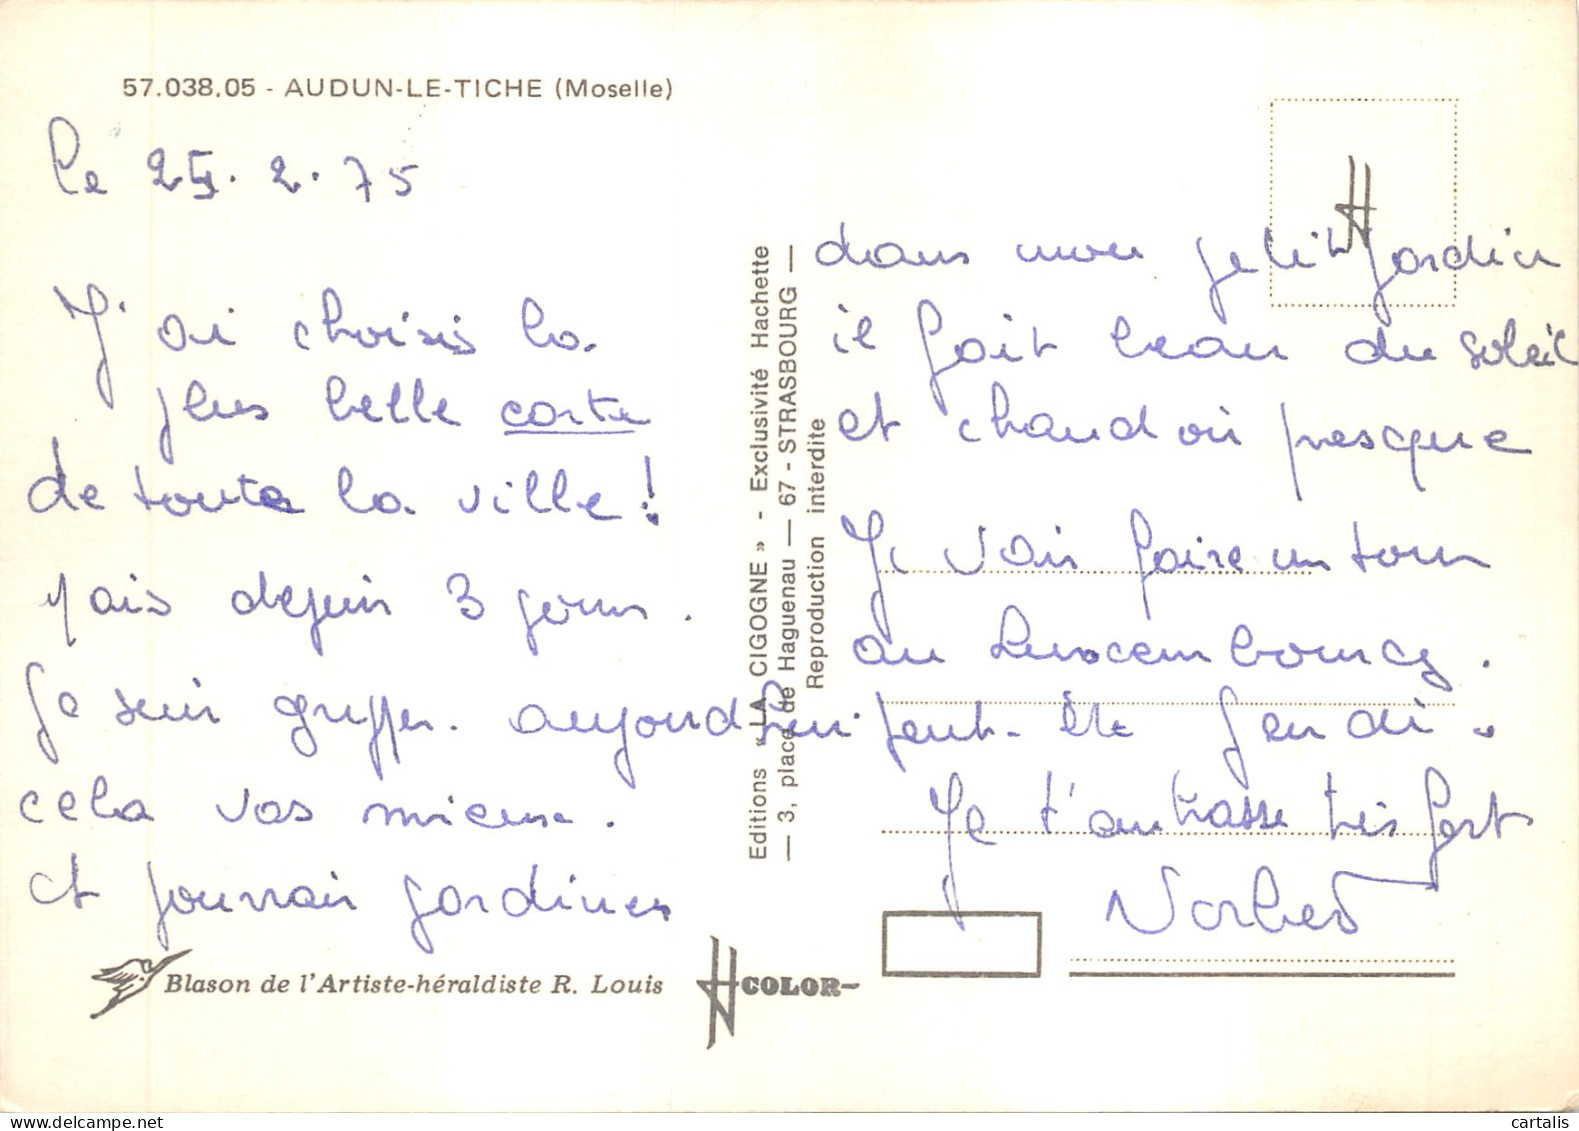 57.038.05 - AUDUN-LE-TICHE (Moselle)
le 25. 2. 75
J'ai choisis la
plus belle carte
de toute la ville !
Mais depuis 3 jours.
Je suis grippé. aujourd'hui
cela vas mieux.
et pourrais jardiner
Blason de l'Artiste-héraldiste R. Louis
COLOR
Editions « LA CIGOGNE » - Exclusivité Hachette
— 3, place de Haguenau — 67 - STRASBOURG —
Reproduction interdite
dans mon petit jardin
il fait beau du soleil
et chaud oui presque
Je vais faire un tour
au Luxembourg.
peut-être jeudi.
Je t'embrasse très fort
Norbert
cartalis